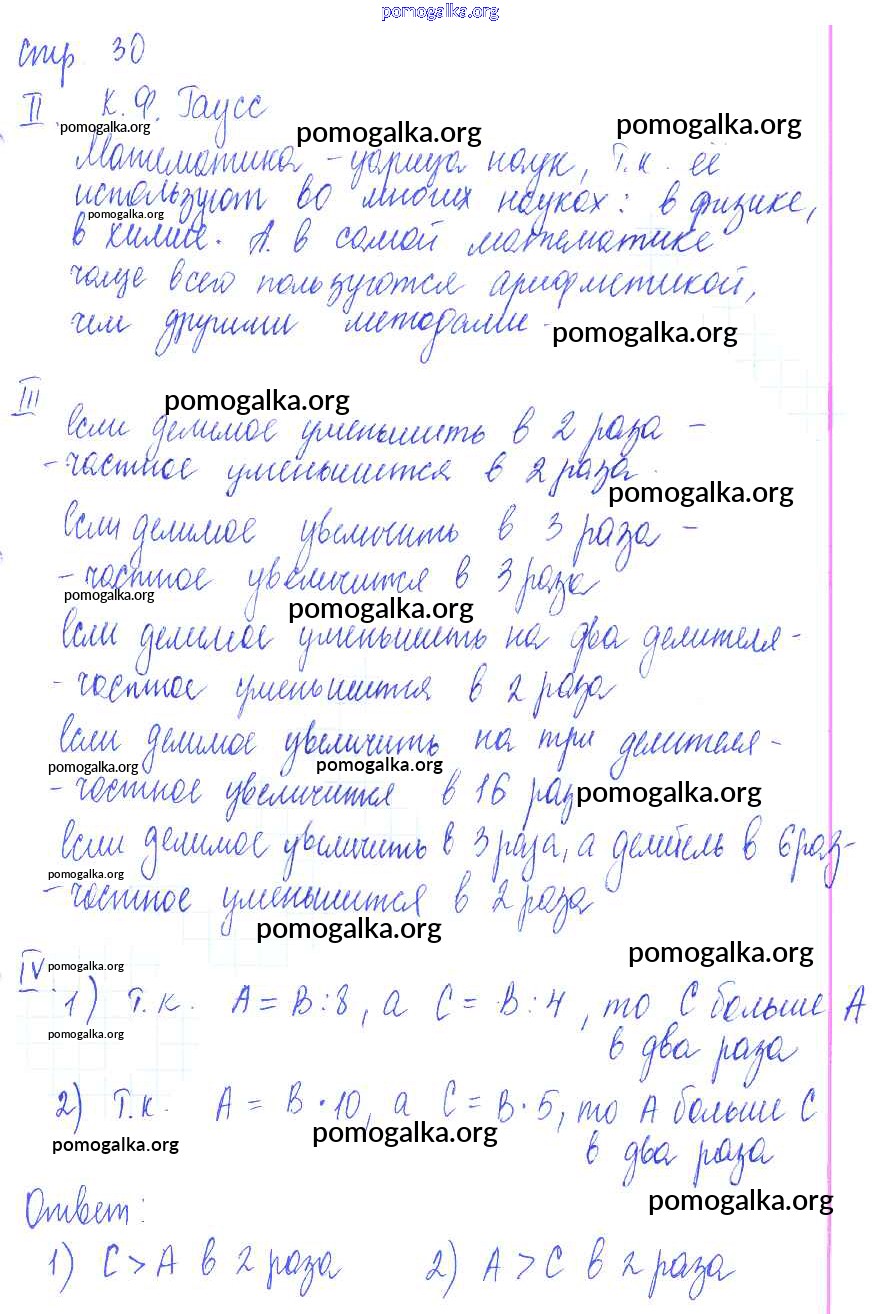 pomogalka.org
стр. 30
II К. Ф. Гаусс
pomogalka.org pomogalka.org pomogalka.org
Математика - царица наук, т.к. её
используют во многих науках: в физике,
pomogalka.org
в химие. А в самой математике
чаще всего пользуются арифметикой,
чем другими методами.
pomogalka.org
III
pomogalka.org
Если делимое уменьшить в 2 раза -
- частное уменьшится в 2 раза.
pomogalka.org
Если делимое увеличить в 3 раза -
- частное увеличится в 3 раза
pomogalka.org pomogalka.org
Если делимое уменьшить на два делителя -
- частное уменьшится в 2 раза
Если делимое увеличить на три делителя -
pomogalka.org pomogalka.org
- частное увеличится в 16 раз
pomogalka.org
Если делимое увеличить в 3 раза, а делитель в 6 раз -
pomogalka.org
- частное уменьшится в 2 раза
pomogalka.org
pomogalka.org
IV pomogalka.org
1) Т.к. А = В : 8, а С = В : 4, то С больше А
pomogalka.org
в два раза
2) Т.к. А = В · 10, а С = В · 5, то А больше С
pomogalka.org pomogalka.org
в два раза
pomogalka.org
Ответ:
1) С > А в 2 раза 2) А > С в 2 раза